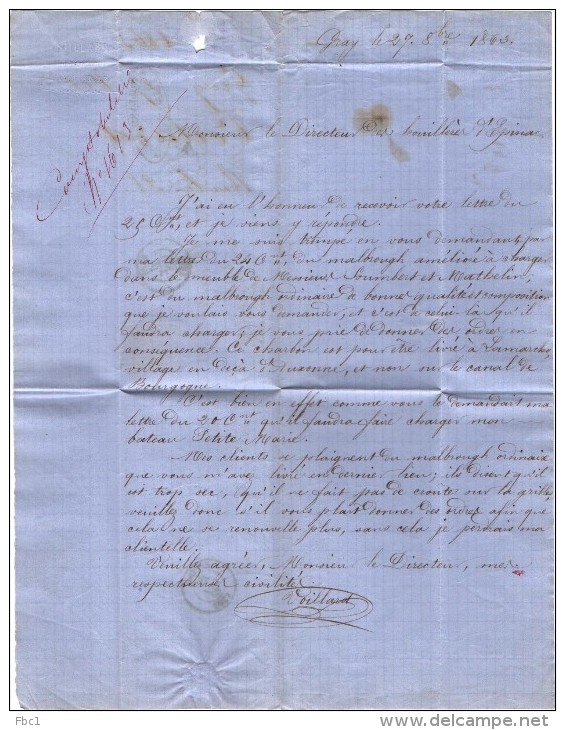 Gray le 27. 8bre 1863.
Monsieur le Directeur des houillères d'Epinac
N° 1613
J'ai eu l'honneur de recevoir votre lettre du
25 Ct, et je viens y répondre.
Je me suis trompé en vous demandant, par
ma lettre du 24 Cnt, du malbrough amélioré à charger
dans le meuble de Messieurs et Mathelin,
c'est du malbrough ordinaire de bonne qualité et composition
que je voulais vous demander, et c'est à celui là qu'il
faudra charger; je vous prie de donner des ordres en
conséquence. Ce charbon est pour être livré à Lamarche,
village en deça d'Auxonne, et non sur le canal de
Bourgogne.
C'est bien en effet comme vous le demandait ma
lettre du 20 Cnt qu'il faudra faire charger mon
bateau Petite Marie.
Mes clients se plaignent du malbrough ordinaire
que vous m'avez livré en dernier lieu; ils disent qu'il
est trop sec, qu'il ne fait pas de croute sur la grille,
veuillez donc s'il vous plait donner des ordres afin que
cela ne se renouvelle plus, sans cela je perdrais ma
clientelle.
Veuillez agréer, Monsieur le Directeur, mes
respectueuses civilités.
Fbc1
www.delcampe.net